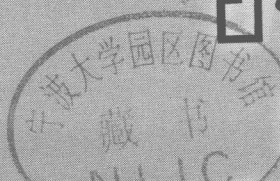 宁波大学园区图书馆
藏书
NLIC